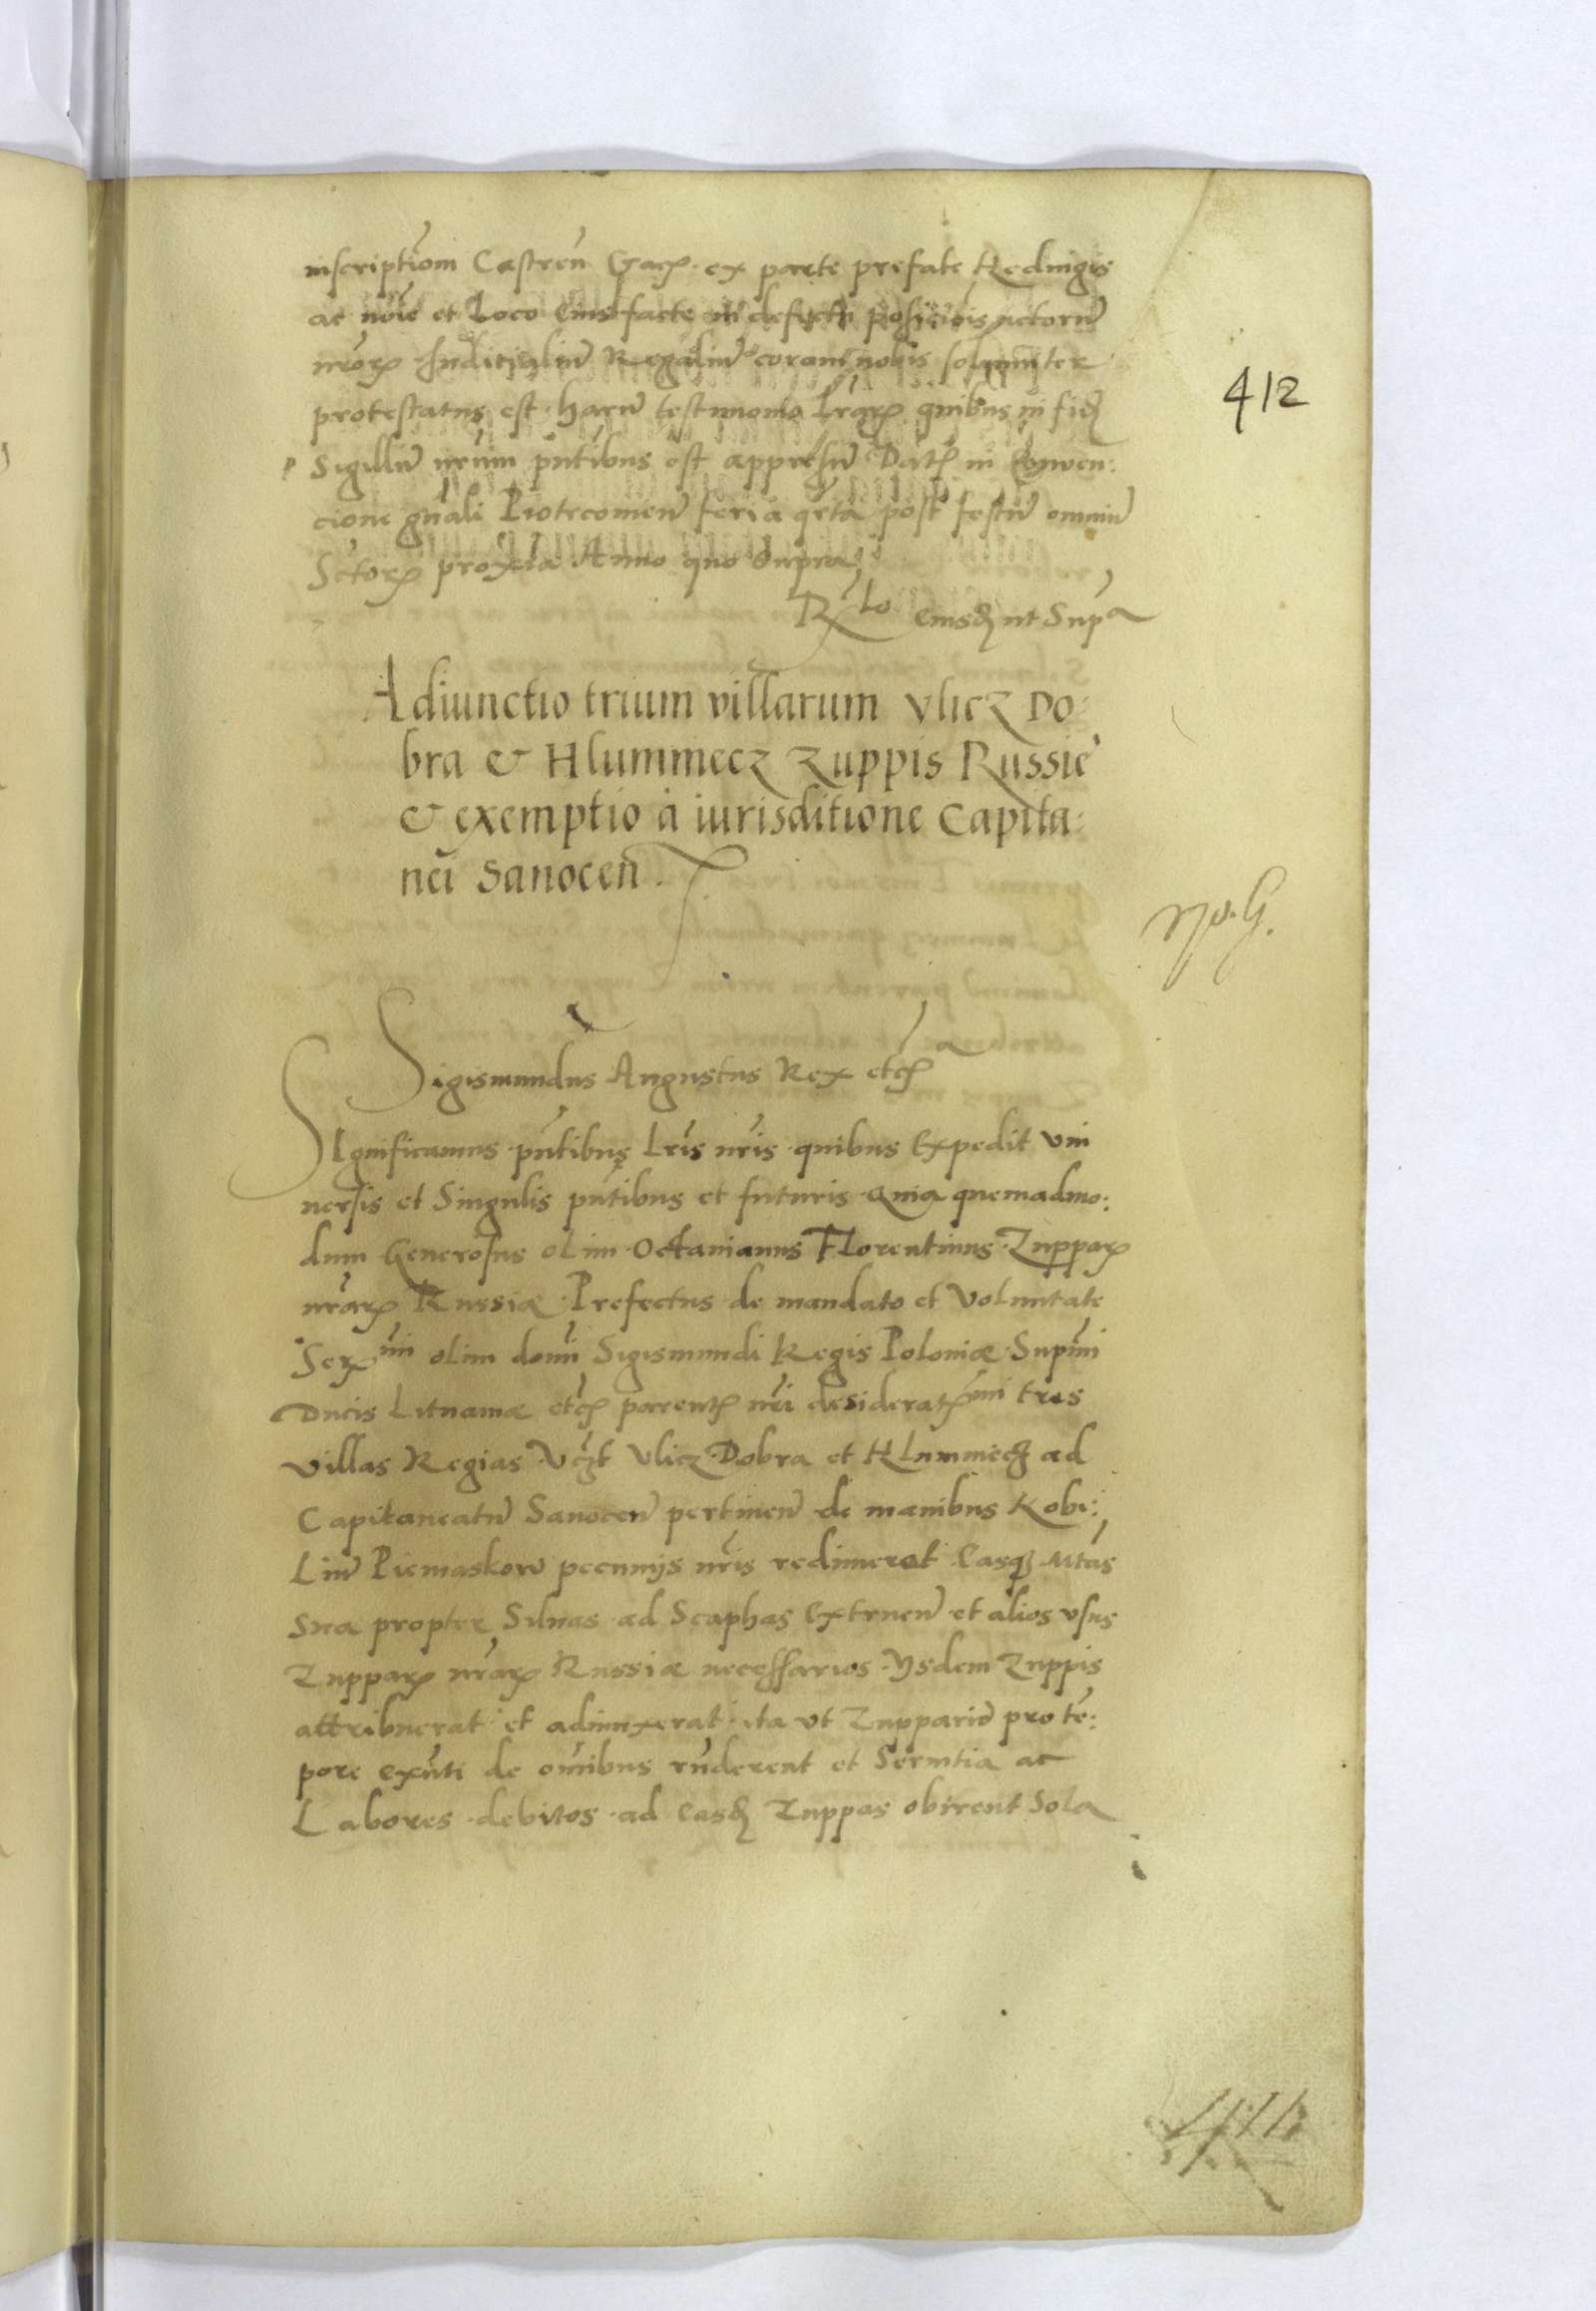 inscriptiom Castreñ ex parte prefate Redingis
ac noie et Loco Eius facte in defectu posicionis actorum
nrorum Juditialium Regalium coram nobis solenniter
protestatus est. harum testimonio lrarum quibus in fidem
Sigillum nrum pntibus est appressum Datum in Conven:
cione gnali Piotrcoviem feria qrta post festum omnium
Sctorum proxīa Anno quo Supra
R lo eiusdem ut Supra
Adiunctio trium villarum Vlicz Do:
bra & Hlummecz Zuppis Russie
& exemptio à iurisditione Capita:
nei Sanoceñ.
412
Sigismundus Augustus Rex etca
SIgnificamus pntibus Lris nris quibus Expedit vni
uersis et Singulis pntibus et futuris Quia quemadmo:
dum Generosus olim Octauianus Florentinus Zupparum
nrarum Russiæ Prefectus de mandato et Voluntate
Sermi olim domi Sigismundi Regis Poloniæ Supmi
Ducis Lituaniæ etc parentis nri desideratmi tres
villas Regias Vczt Vlicz Dobra et Hlummecz ad
Capitaneatum Sanoceñ pertineñ de manibus Kobi:
Lin̄ Piemaskow pecunijs nris redimerat Easque Mtas
Sua propter Siluas ad Scaphas Extrueñ et alios vsus
Zupparum nrarum Russiæ necessarios ijsdem Zuppis
attribuerat et adiunxerat ita vt Zuppario pro tem:
pore exnti de omibus rnderent et Seruitia ac
Labores debitos ad Easdem Zuppas obirent Sola